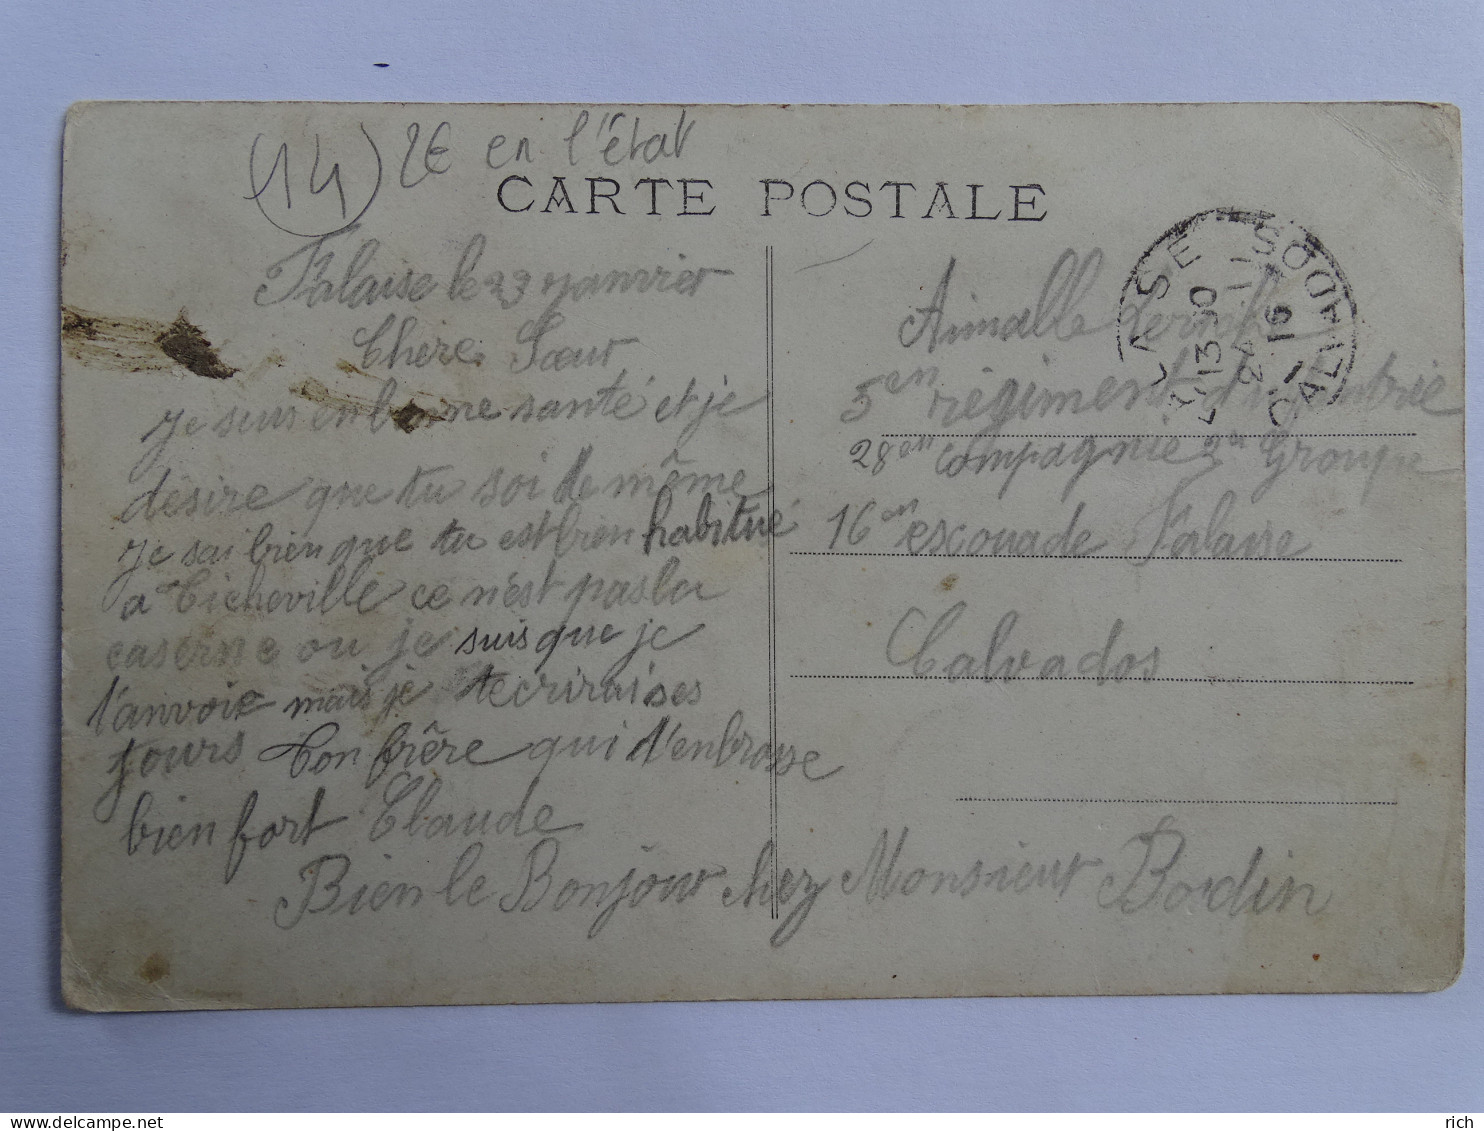 (14) 2€ en l'état
CARTE POSTALE
Falaise le 23 janvier
Chère Sœur
je suis en bonne santé et je
désire que tu soi de même
je sai bien que tu est bien habitué
a Ticheville ce n'est pas la
caserne ou je suis que je
t'anvoie mais je tecrirai ses
jours Ton frère qui t'enbrasse
bien fort Claude
Bien le Bonjour chez Monsieur Bordin
Aimable
5en régiment d'infantrie
28en compagnie 2en Groupe
16en escouade Falaise
Calvados
FALAISE
13 30
24 - 1
16
CALVADOS
rich